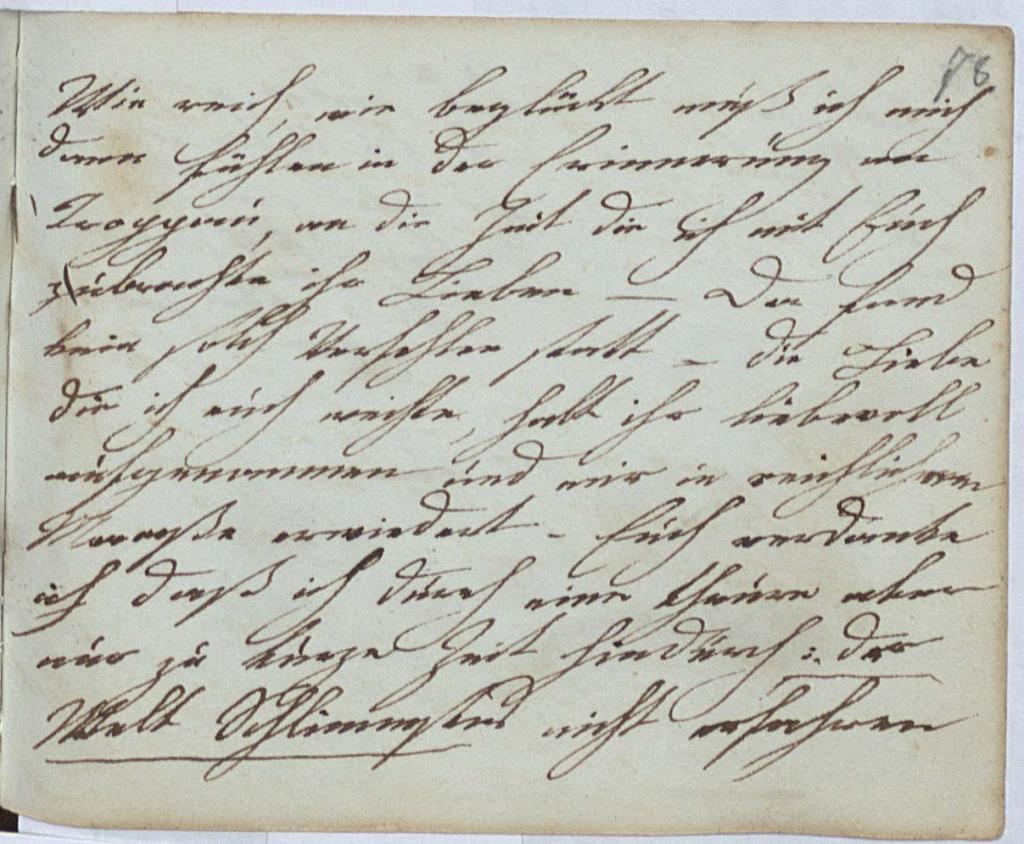 78
Wie reich, wie beglückt muß ich mich
dann fühlen in der Erinnerung an
Troppau, an die Zeit die ich mit Euch
zubrachte ihr Lieben — Da fand
kein solch Verfehlen statt – die Liebe
die ich euch weihte, habt ihr liebevoll
aufgenommen und mir in reichlichem
Maaße erwiedert – Euch verdanke
ich daß ich durch eine theure aber
nur zu kurze Zeit hindurch: der
Welt Schlimmstes nicht erfahren